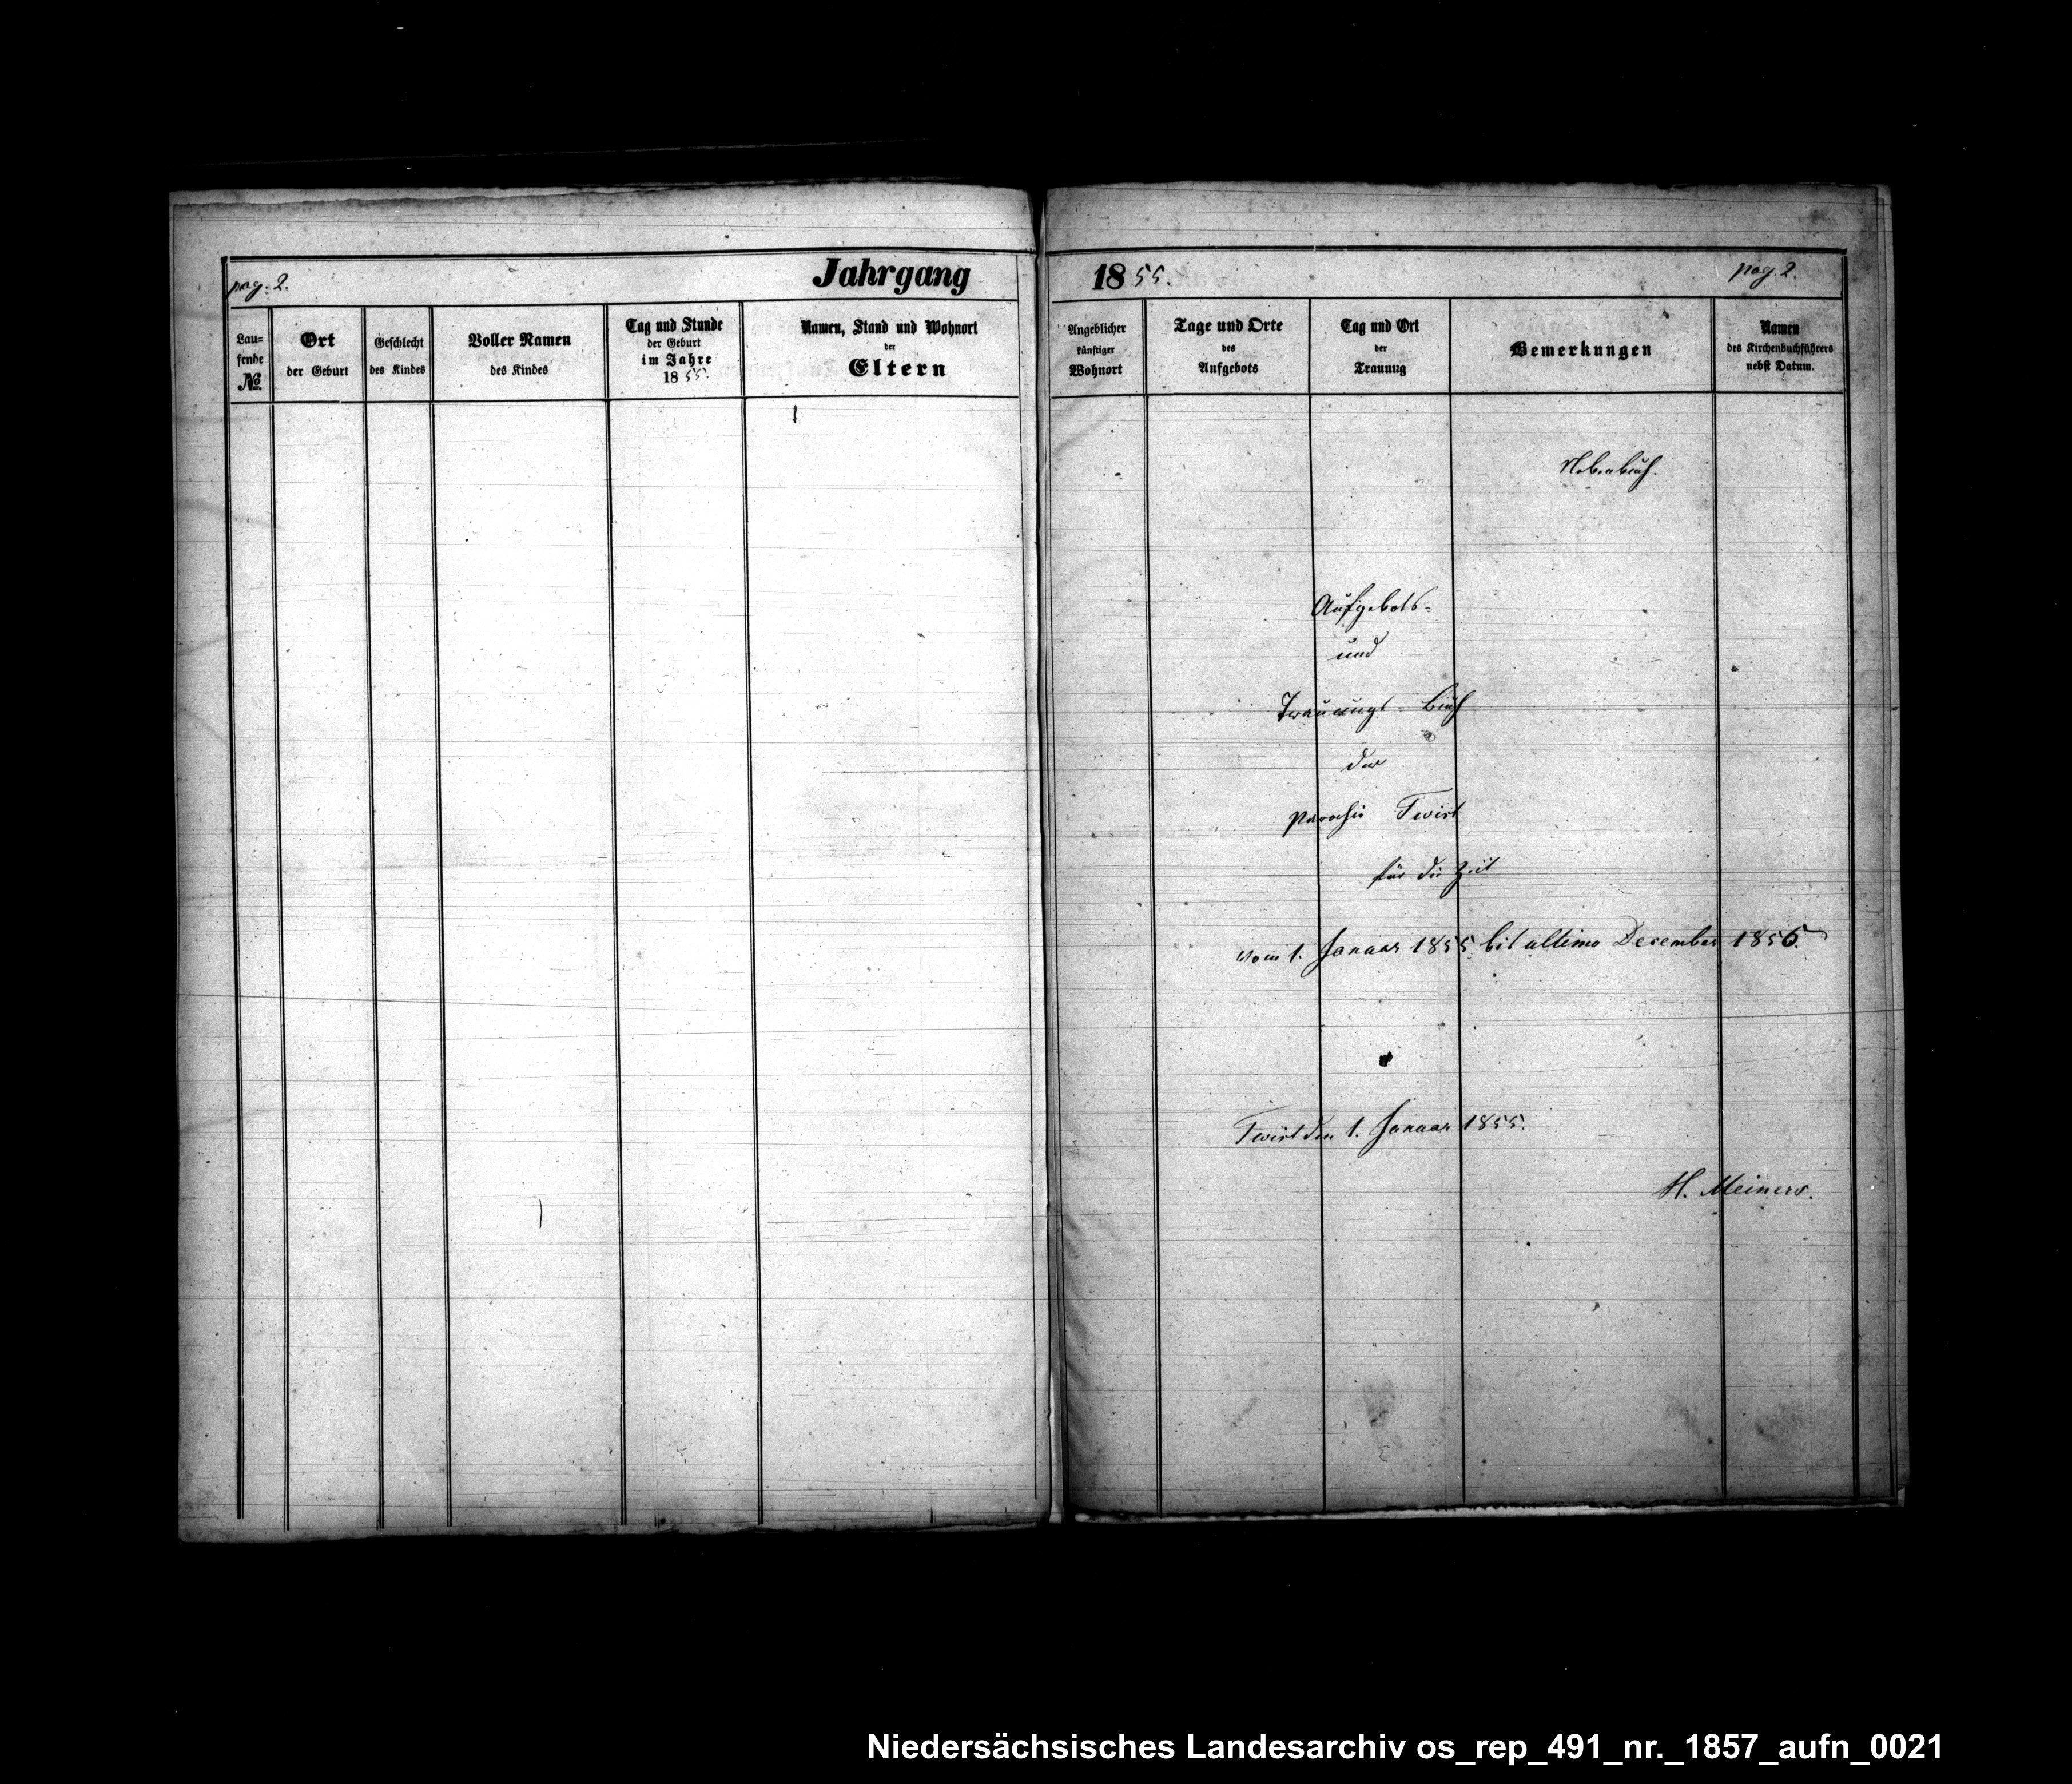 pag. 2.
Jahrgang
Lau=
fende
№
Ort
der Geburt
Geschlecht
des Kindes
Voller Namen
des Kindes
Tag und Stunde
der Geburt
im Jahre
1855.
Namen, Stand und Wohnort
der
Eltern
1855.
pag. 2.
Angeblicher
künftiger
Wohnort
Tage und Orte
des
Aufgebots
Tag und Ort
der
Trauung
Bemerkungen
Namen
des Kirchenbuchführers
nebst Datum.
Nebenbuch.
Aufgebots=
und
Trauungs=Buch
der
Parochie Twist
für die Zeit
vom 1. Januar 1855 bis ultimo December 1856.
Twist den 1. Januar 1855.
H. Meiners.
Niedersächsisches Landesarchiv os_rep_491_nr._1857_aufn_0021